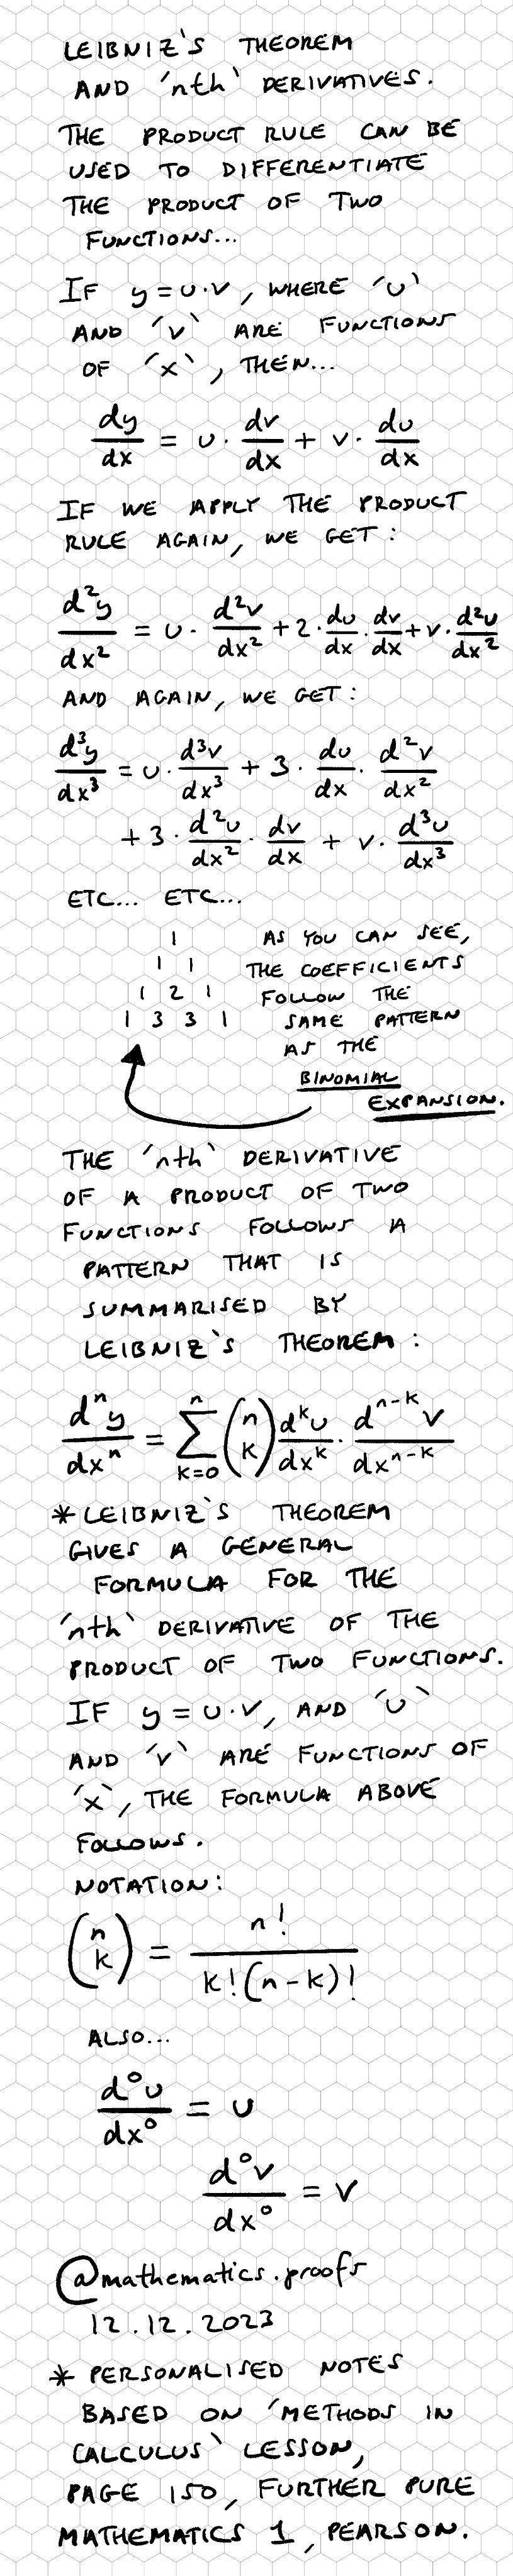 LEIBNIZ'S THEOREM
AND 'nth' DERIVATIVES.
THE PRODUCT RULE CAN BE
USED TO DIFFERENTIATE
THE PRODUCT OF TWO
FUNCTIONS...
IF y = u·v, WHERE 'u'
AND 'v' ARE FUNCTIONS
OF 'x', THEN...
dy/dx = u · dv/dx + v · du/dx
IF WE APPLY THE PRODUCT
RULE AGAIN, WE GET:
d²y/dx² = u · d²v/dx² + 2 · du/dx · dv/dx + v · d²u/dx²
AND AGAIN, WE GET:
d³y/dx³ = u · d³v/dx³ + 3 · du/dx · d²v/dx²
+ 3 · d²u/dx² · dv/dx + v · d³u/dx³
ETC... ETC...
1
1 1
1 2 1
1 3 3 1
AS YOU CAN SEE,
THE COEFFICIENTS
FOLLOW THE
SAME PATTERN
AS THE
BINOMIAL
EXPANSION.
THE 'nth' DERIVATIVE
OF A PRODUCT OF TWO
FUNCTIONS FOLLOWS A
PATTERN THAT IS
SUMMARISED BY
LEIBNIZ'S THEOREM:
dⁿy/dxⁿ = Σ_{k=0}^{n} (n k) dᵏu/dxᵏ · dⁿ⁻ᵏv/dxⁿ⁻ᵏ
* LEIBNIZ'S THEOREM
GIVES A GENERAL
FORMULA FOR THE
'nth' DERIVATIVE OF THE
PRODUCT OF TWO FUNCTIONS.
IF y = u·v, AND 'u'
AND 'v' ARE FUNCTIONS OF
'x', THE FORMULA ABOVE
FOLLOWS.
NOTATION:
(n k) = n! / k!(n-k)!
ALSO...
d⁰u/dx⁰ = u
d⁰v/dx⁰ = v
@mathematics.proofs
12.12.2023
* PERSONALISED NOTES
BASED ON 'METHODS IN
CALCULUS' LESSON,
PAGE 150, FURTHER PURE
MATHEMATICS 1, PEARSON.